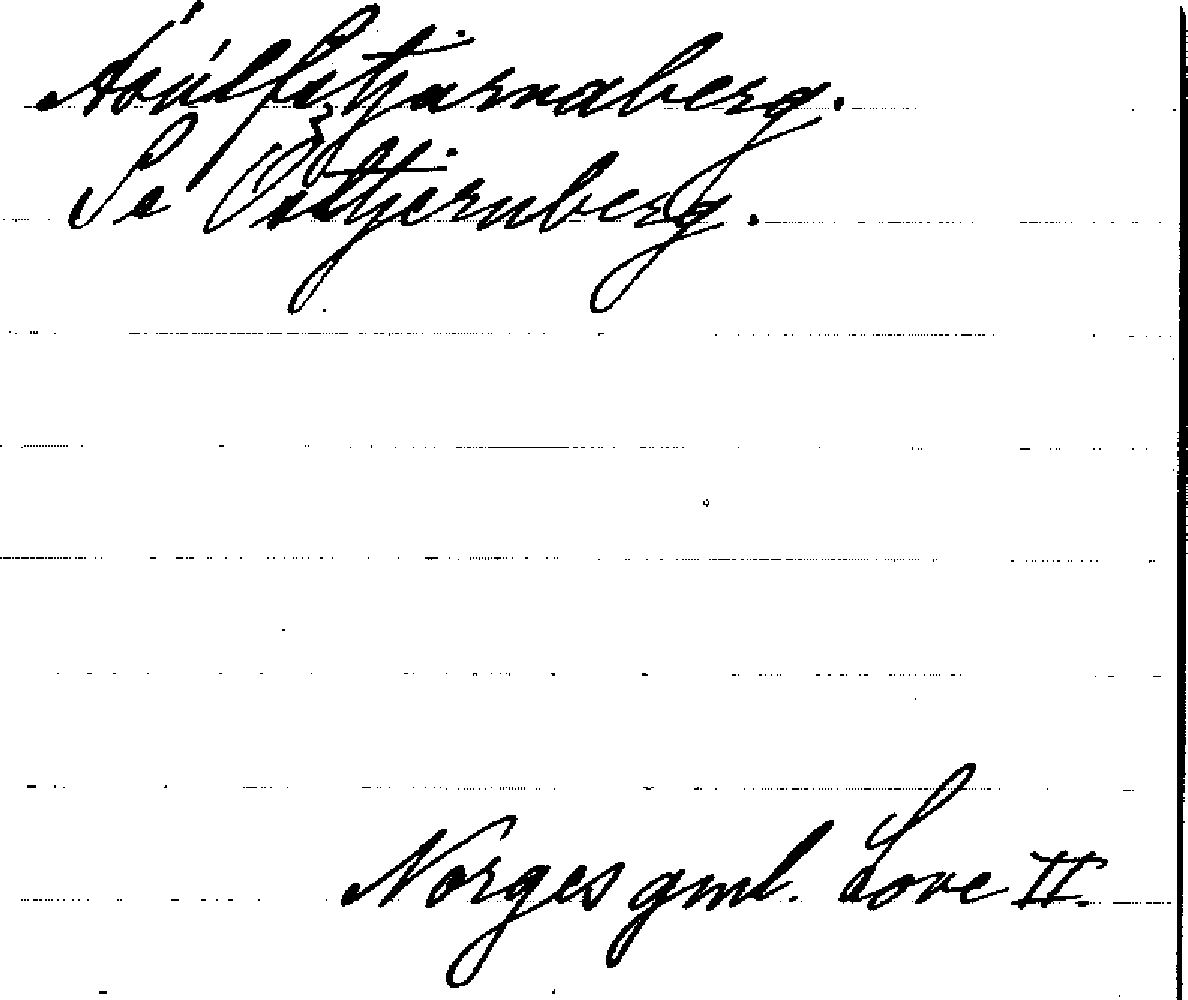 Ásúlfstjarnaberg.
Se Østtjernberg.
Norges gml. Love II.